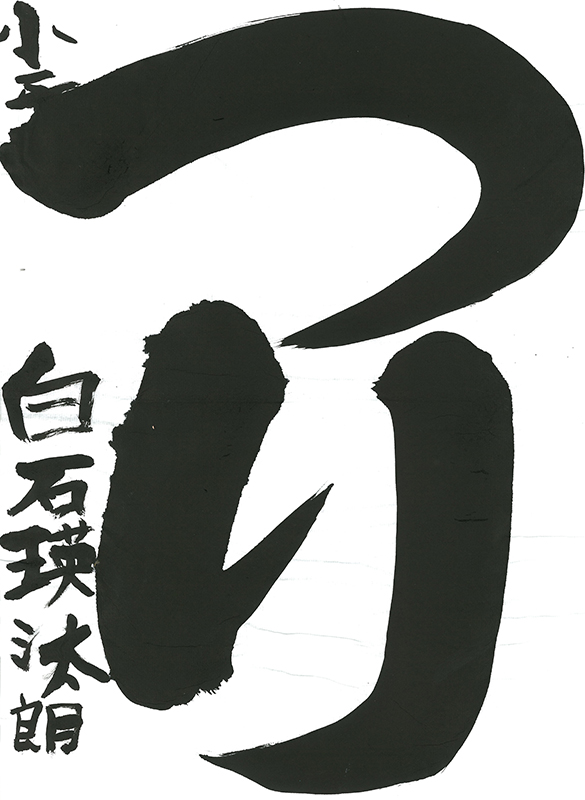 つり
小二
白石瑛汰朗